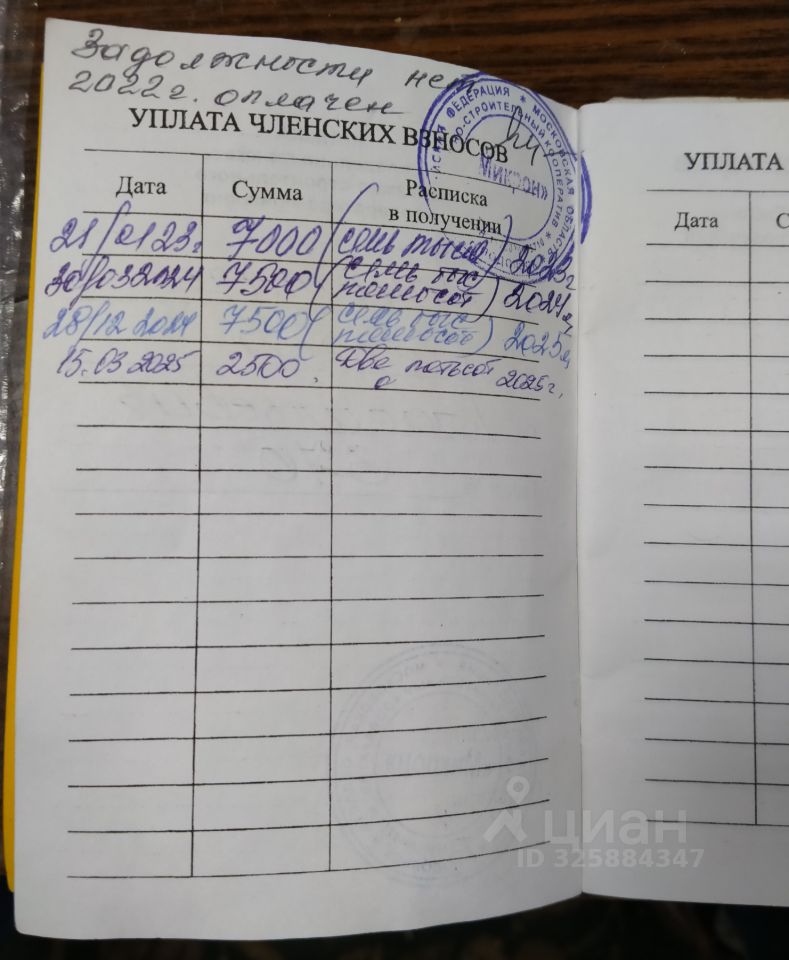 Задолжности нет
2022г. оплачен
УПЛАТА ЧЛЕНСКИХ ВЗНОСОВ
Дата Сумма Расписка в получении
21/01 23г. 7000 (семь тысяч) 2023г
30/03 2024 7500 (семь тыс пятьсот) 2024г,
28/12 2024 7500 (семь тыс пятьсот) 2025г,
15.03 2025 2500. Две пятьсот 2025г,
ФЕДЕРАЦИЯ * МОСКОВСКАЯ ОБЛАСТЬ
СТРОИТЕЛЬНЫЙ КООПЕРАТИВ *
МИКРОН»
УПЛАТА
Дата С
циан
ID 325884347